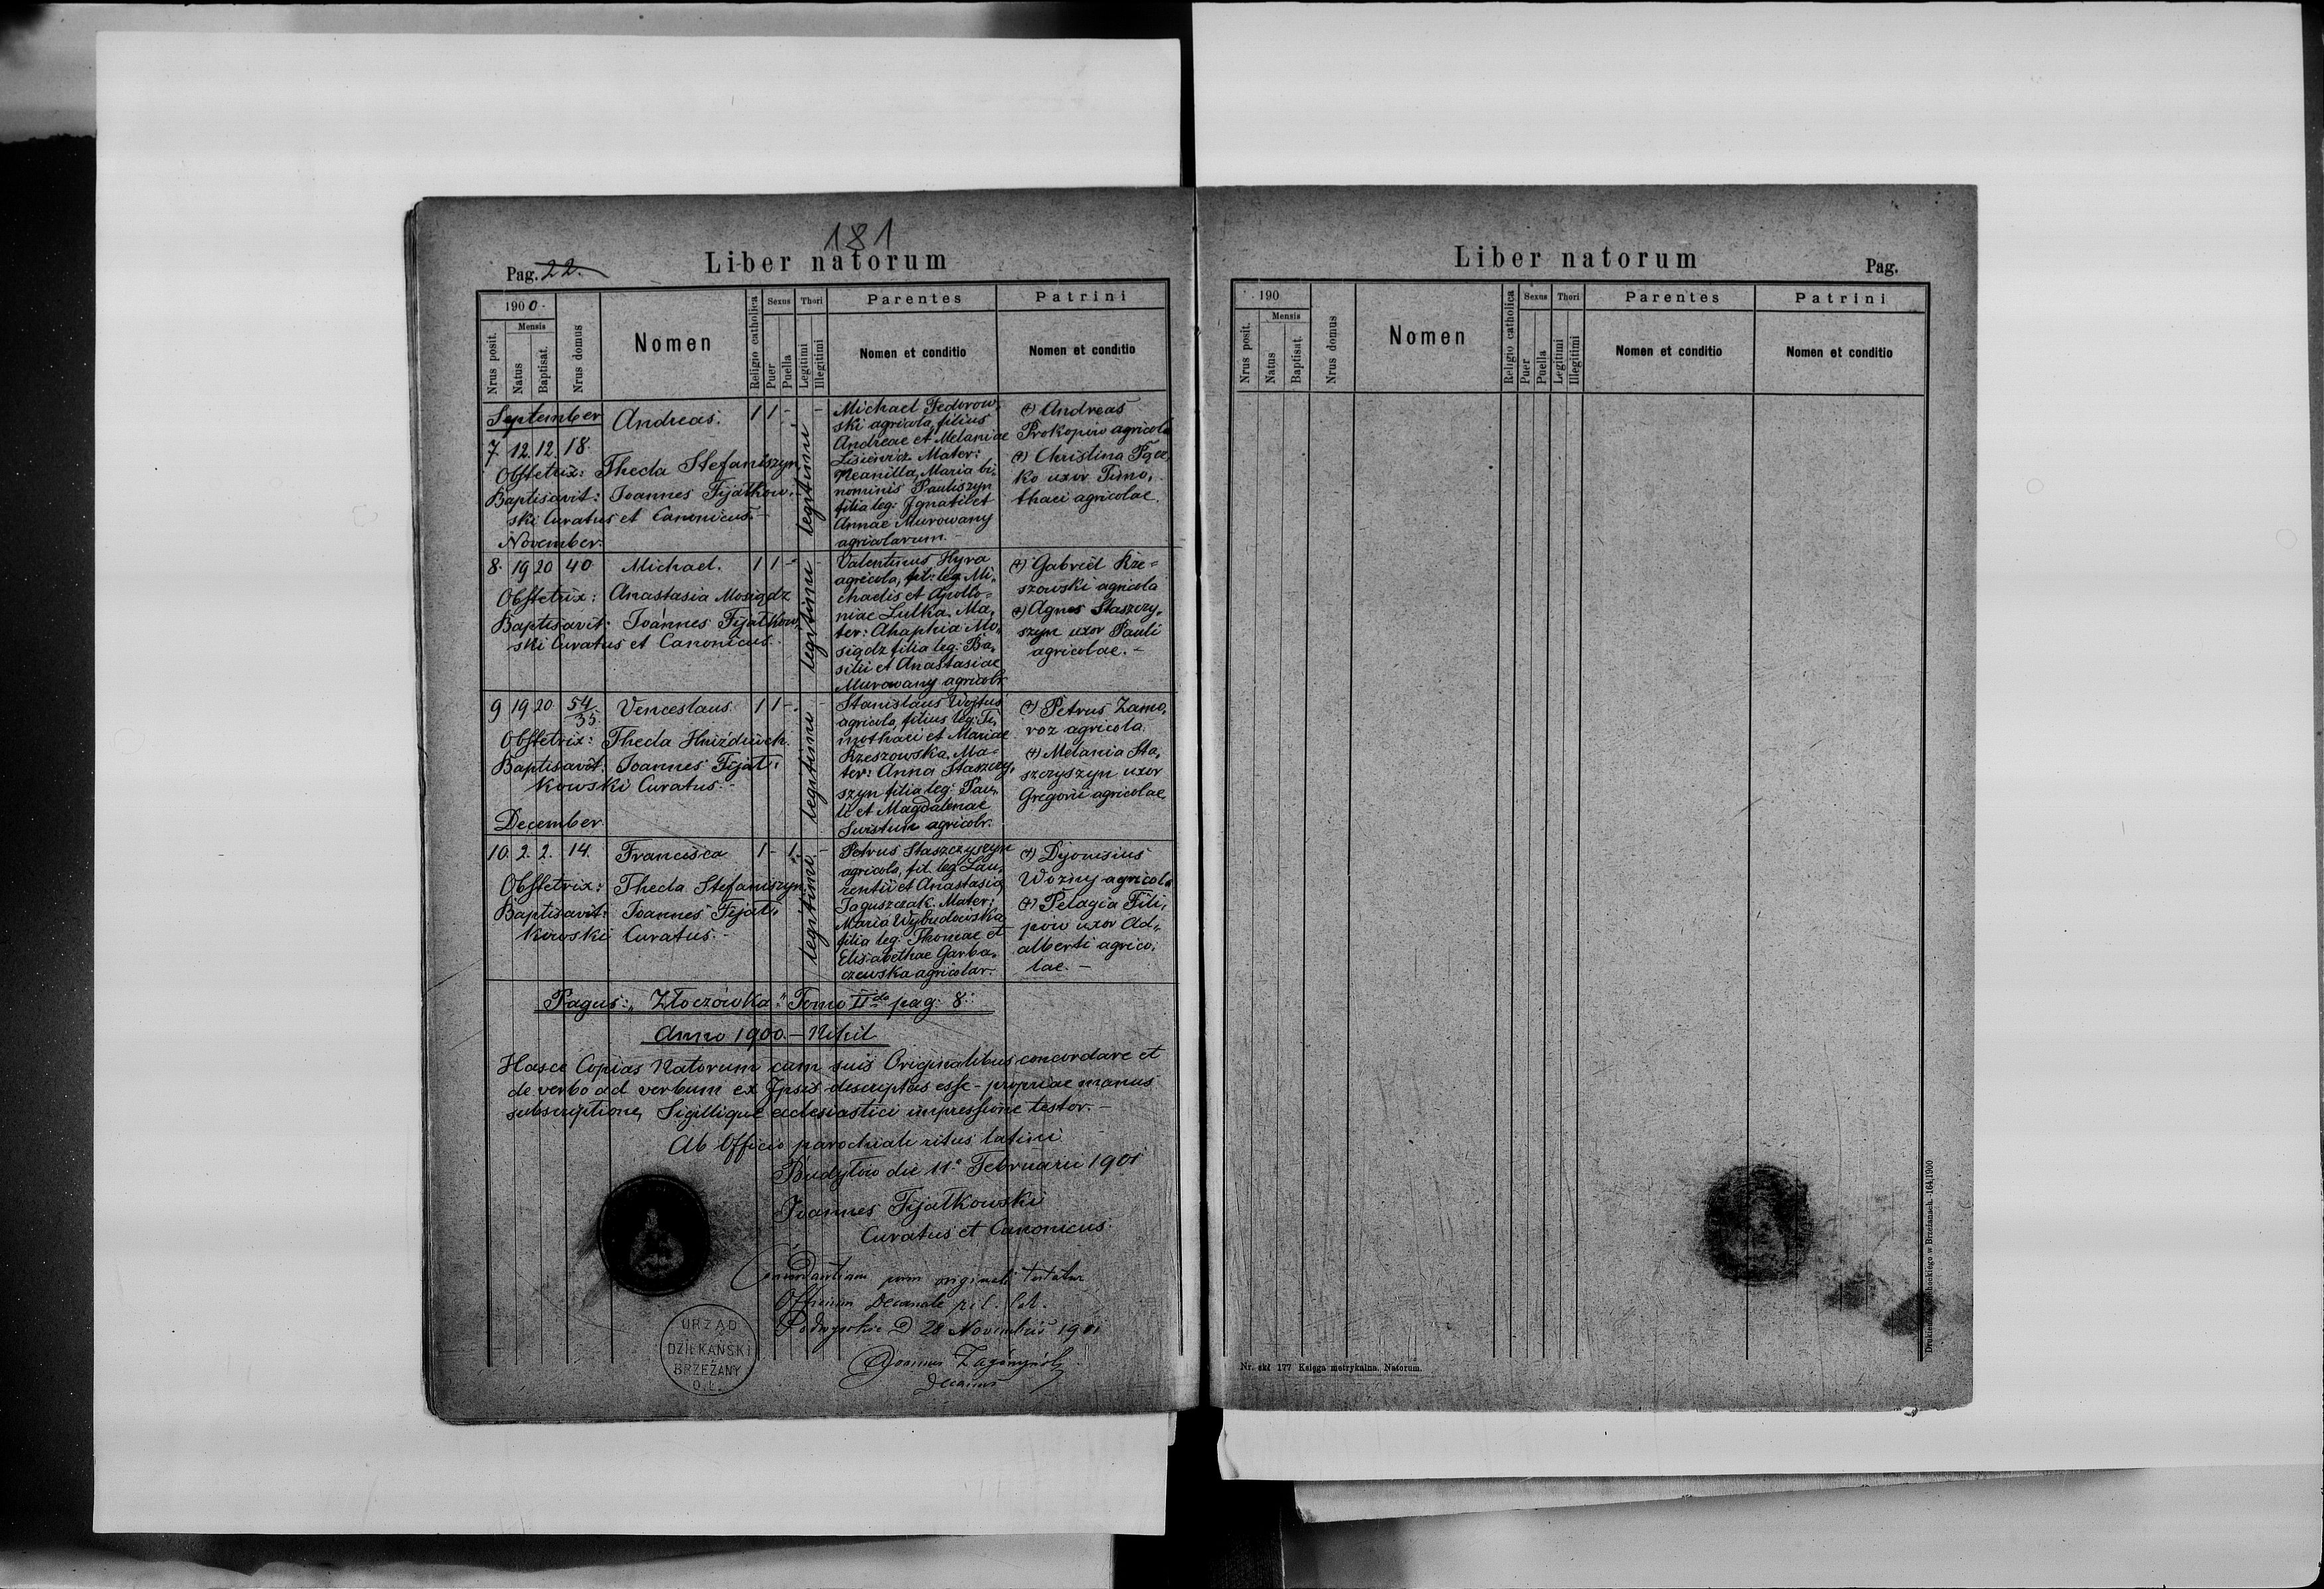 181
Liber natorum
Pag. 22.
1900
Mensis
Nrus posit.
Natus
Baptisat.
Nrus domus
Nomen
Religio catholica
Sexus
Puer
Puella
Thori
Legitimi
Illegitimi
Parentes
Nomen et conditio
Patrini
Nomen et conditio
September
7. 12. 12. 18.
Andreas. 1 1 - legitimi -
Obstetrix: Thecla Stefaniszyn
Baptisavit: Joannes Fijałkow-
ski Curatus et Canonicus. -
Michael Fedorow-
ski agricola, filius
Andreae et Melaniae
Lisiewicz. Mater:
Neanilla, Maria bi-
nominis Pauliszyn
filia leg: Ignatii et
Annae Murowany
agricolarum. -
(+) Andreas
Prokopiw agricola
(+) Christina
ko uxor Timo-
thaei agricolae.
November.
8. 19 20 40 Michael. 1 1 - legitimi -
Obstetrix: Anastasia Mosiądz
Baptisavit: Joannes Fijałkow-
ski Curatus et Canonicus.
Valentinus Hyra
agricola, fil: leg. Mi-
chaelis et Apollo-
niae Lulka. Ma-
ter: Ahaphia Mo-
siądz filia leg: Ba-
silii et Anastasiae
Murowany agricolr.
(+) Gabriël Rze-
szowski agricola
(+) Agnes Staszczy-
szyn uxor Pauli
agricolae. -
9 19 20 54/35 Venceslaus. 1 1 - legitimi -
Obstetrix: Thecla Hnizdiuch.
Baptisavit: Joannes Fijał-
kowski Curatus. -
Stanislaus Wojtus
agricola, filius leg: Ti-
mothaei et Mariae
Rzeszowska. Ma-
ter: Anna Staszczy-
szyn filia leg: Pau-
li et Magdalenae
Swistun agricolr.
(+) Petrus Zamo-
roz agricola.
(+) Melania Sta-
szczyszyn uxor
Gregorii agricolae
December.
10. 2. 2. 14. Francisca 1 - 1. legitimi -
Obstetrix: Thecla Stefaniszyn
Baptisavit: Joannes Fijał-
kowski Curatus. -
Petrus Staszczyszyn
agricola, fil. leg. Lau-
rentii et Anastasia
Jaguszczak. Mater:
Maria Wybudowska
filia leg. Thomae et
Elisabethae Garba-
czewska agricolar.
(+) Dyonisius
Woźny agricola
(+) Pelagia Fili-
pow uxor Ad-
alberti agrico-
lae. -
Pagus: "Złoczówka" Tomo IIdo pag: 8.
Anno 1900. - Nihil.
Hasce Copias Natorum cum suis Originalibus concordare et
de verbo ad verbum ex Ipsis descriptas esse - propriae manus
subscriptione, Sigillique ecclesiastici impressione testor. -
Ab Officio parochiali ritus latini
Budyłow die 11a Februarii 1901
Joannes Fijałkowski
Curatus et Canonicus.
Concordantiam cum originali testatur
Officium Decanale r. l.
Podwysokie D 28 Novembris 1901
Decanus
URZĄD
DZIEKAŃSKI
BRZEŻANY
O. Ł.
Liber natorum
Pag.
190
Mensis
Nrus posit.
Natus
Baptisat.
Nrus domus
Nomen
Religio catholica
Sexus
Puer
Puella
Thori
Legitimi
Illegitimi
Parentes
Nomen et conditio
Patrini
Nomen et conditio
Nr. skł 177 Księga metrykalna. Natorum.
w Brzeżanach. 164/1900